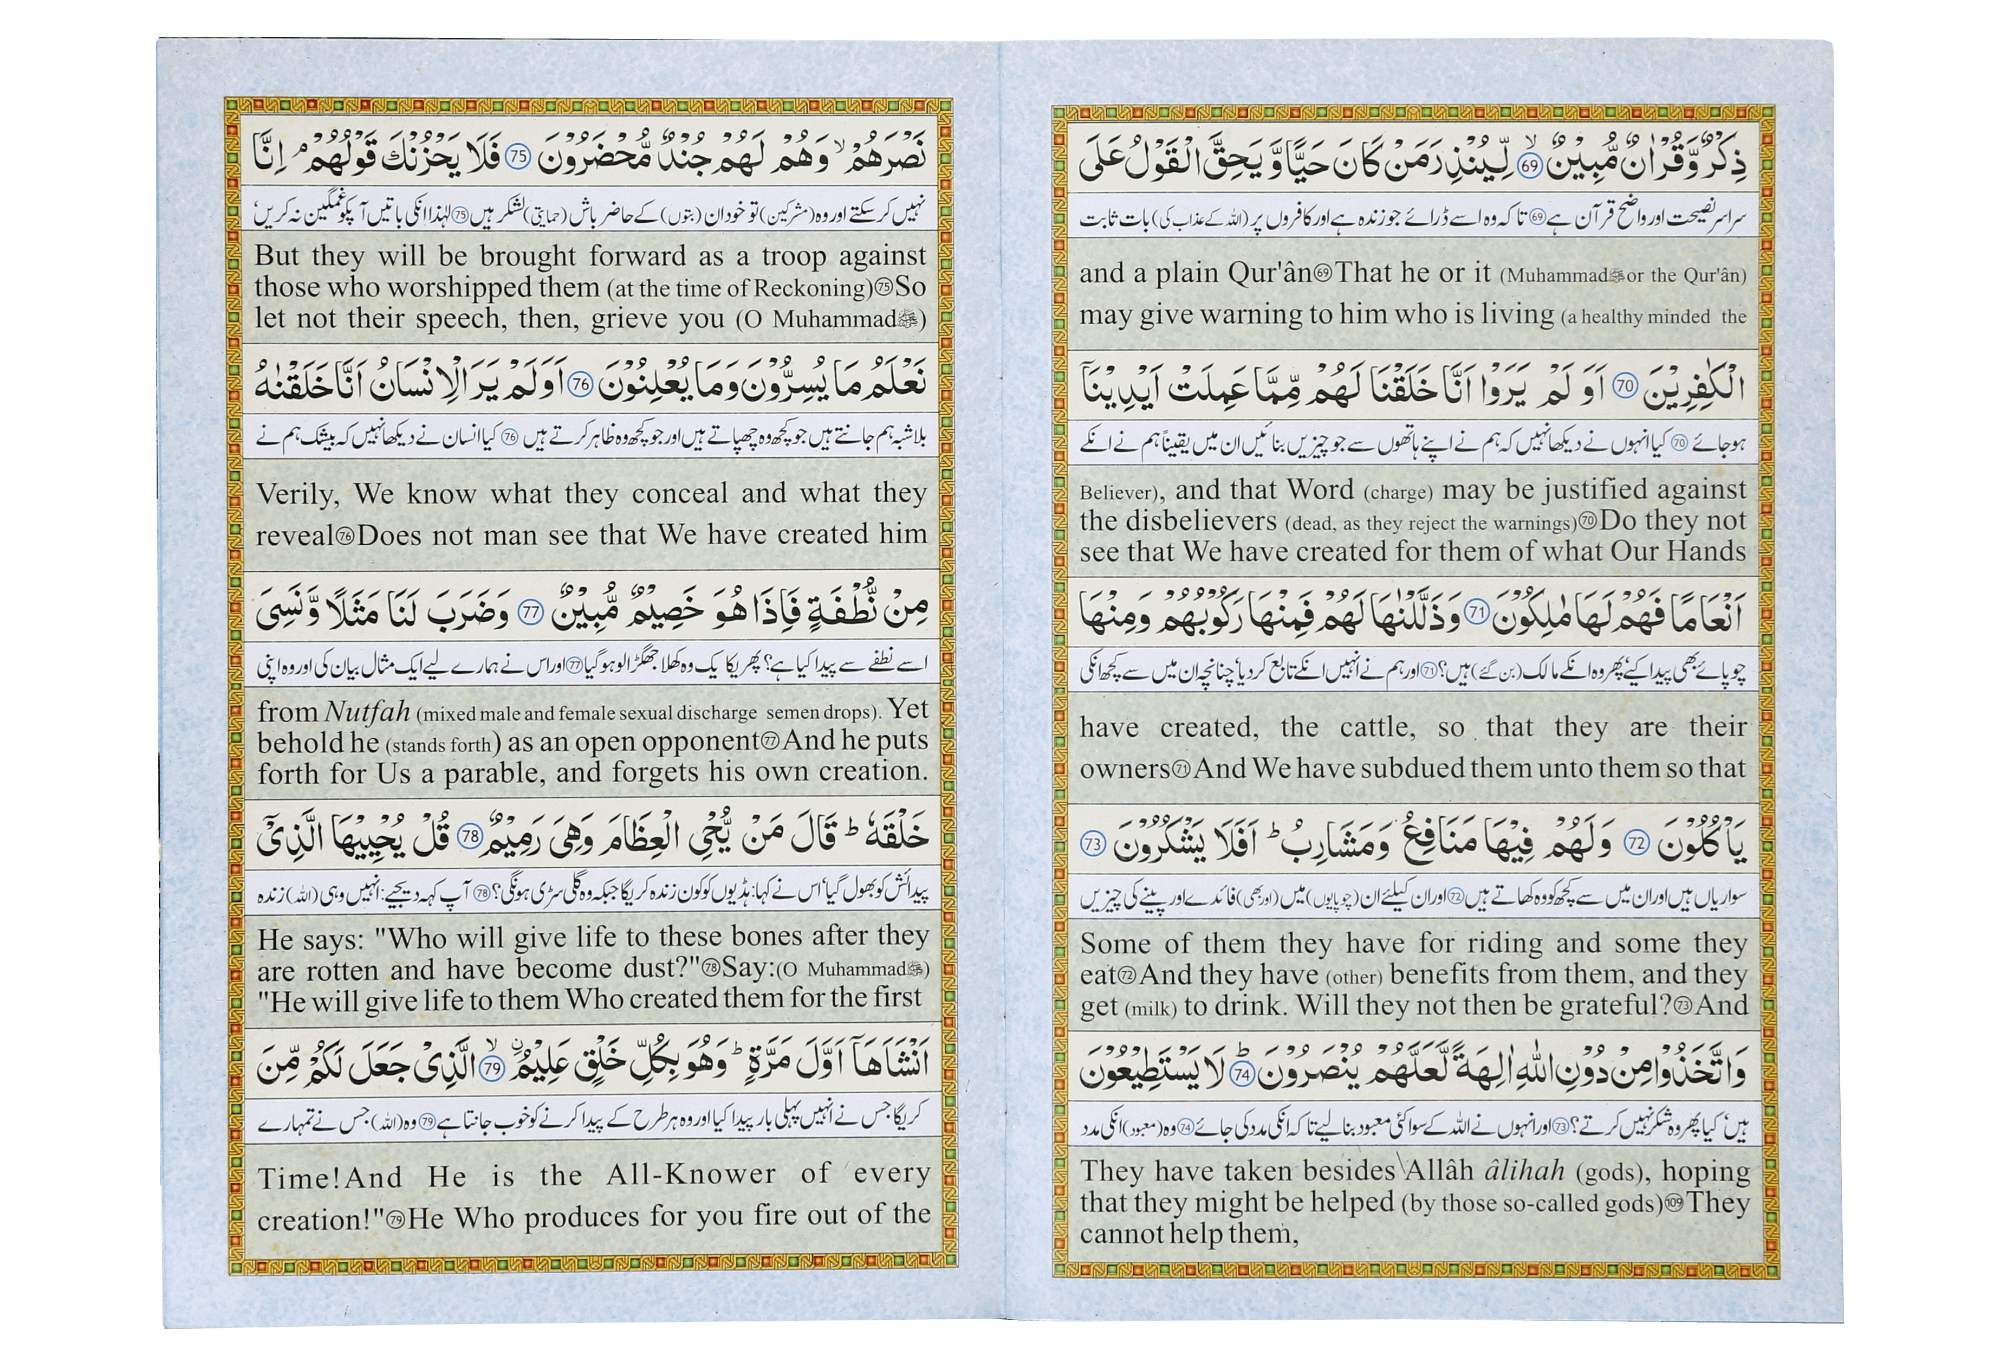 ذِكْرٌ وَّقُرْاٰنٌ مُّبِيْنٌ ۙ 69 لِّيُنْذِرَ مَنْ كَانَ حَيًّا وَّ يَحِقَّ الْقَوْلُ عَلَى
سراسر نصیحت اور واضح قرآن ہے 69 تاکہ وہ اسے ڈرائے جو زندہ ہے اور کافروں پر (اللہ کے عذاب کی) بات ثابت
and a plain Qur'ân 69 That he or it (Muhammad ﷺ or the Qur'ân)
may give warning to him who is living (a healthy minded the
الْكٰفِرِيْنَ 70 اَوَ لَمْ يَرَوْا اَنَّا خَلَقْنَا لَهُمْ مِّمَّا عَمِلَتْ اَيْدِيْنَآ
ہو جائے 70 کیا انہوں نے دیکھا نہیں کہ ہم نے اپنے ہاتھوں سے جو چیزیں بنائیں ان میں یقیناً ہم نے انکے
Believer), and that Word (charge) may be justified against
the disbelievers (dead, as they reject the warnings) 70 Do they not
see that We have created for them of what Our Hands
اَنْعَامًا فَهُمْ لَهَا مٰلِكُوْنَ 71 وَذَلَّلْنٰهَا لَهُمْ فَمِنْهَا رَكُوْبُهُمْ وَمِنْهَا
چوپائے بھی پیدا کیے' پھر وہ انکے مالک (بن گئے) ہیں؟ 71 اور ہم نے انہیں انکے تابع کر دیا' چنانچہ ان میں سے کچھ انکی
have created, the cattle, so that they are their
owners 71 And We have subdued them unto them so that
يَاْكُلُوْنَ 72 وَلَهُمْ فِيْهَا مَنَافِعُ وَمَشَارِبُ ؕ اَفَلَا يَشْكُرُوْنَ 73
سواریاں ہیں اور ان میں سے کچھ کو وہ کھاتے ہیں 72 اور ان کیلئے ان (چوپایوں) میں (اور بھی) فائدے اور پینے کی چیزیں
Some of them they have for riding and some they
eat 72 And they have (other) benefits from them, and they
get (milk) to drink. Will they not then be grateful? 73 And
وَاتَّخَذُوْا مِنْ دُوْنِ اللّٰهِ اٰلِهَةً لَّعَلَّهُمْ يُنْصَرُوْنَ ؕ 74 لَا يَسْتَطِيْعُوْنَ
ہیں' کیا پھر وہ شکر نہیں کرتے؟ 73 اور انہوں نے اللہ کے سوا کئی معبود بنا لیے تاکہ انکی مدد کی جائے 74 وہ (معبود) انکی مدد
They have taken besides Allâh âlihah (gods), hoping
that they might be helped (by those so-called gods) 109 They
cannot help them,
نَصْرَهُمْ ۙ وَهُمْ لَهُمْ جُنْدٌ مُّحْضَرُوْنَ 75 فَلَا يَحْزُنْكَ قَوْلُهُمْ ۘ اِنَّا
نہیں کر سکتے اور وہ (مشرکین) تو خود ان (بتوں) کے حاضر باش (حمایتی) لشکر ہیں 75 لہٰذا انکی باتیں آپکو غمگین نہ کریں'
But they will be brought forward as a troop against
those who worshipped them (at the time of Reckoning) 75 So
let not their speech, then, grieve you (O Muhammad ﷺ)
نَعْلَمُ مَا يُسِرُّوْنَ وَمَا يُعْلِنُوْنَ 76 اَوَلَمْ يَرَ الْاِنْسَانُ اَنَّا خَلَقْنٰهُ
بلاشبہ ہم جانتے ہیں جو کچھ وہ چھپاتے ہیں اور جو کچھ وہ ظاہر کرتے ہیں 76 کیا انسان نے دیکھا نہیں کہ بیشک ہم نے
Verily, We know what they conceal and what they
reveal 76 Does not man see that We have created him
مِنْ نُّطْفَةٍ فَاِذَا هُوَ خَصِيْمٌ مُّبِيْنٌ 77 وَضَرَبَ لَنَا مَثَلًا وَّنَسِيَ
اسے نطفے سے پیدا کیا ہے؟ پھر یکایک وہ کھلا جھگڑالو ہو گیا 77 اور اس نے ہمارے لیے ایک مثال بیان کی اور وہ اپنی
from Nutfah (mixed male and female sexual discharge semen drops). Yet
behold he (stands forth) as an open opponent 77 And he puts
forth for Us a parable, and forgets his own creation.
خَلْقَهٗ ؕ قَالَ مَنْ يُّحْيِ الْعِظَامَ وَهِيَ رَمِيْمٌ 78 قُلْ يُحْيِيْهَا الَّذِيْٓ
پیدائش کو بھول گیا' اس نے کہا: ہڈیوں کو کون زندہ کریگا جبکہ وہ گلی سڑی ہونگی؟ 78 آپ کہہ دیجیے: انہیں وہی (اللہ) زندہ
He says: "Who will give life to these bones after they
are rotten and have become dust?" 78 Say:(O Muhammad ﷺ)
"He will give life to them Who created them for the first
اَنْشَاَهَآ اَوَّلَ مَرَّةٍ ؕ وَهُوَ بِكُلِّ خَلْقٍ عَلِيْمُ ۙ 79 الَّذِيْ جَعَلَ لَكُمْ مِّنَ
کریگا جس نے انہیں پہلی بار پیدا کیا اور وہ ہر طرح کے پیدا کرنے کو خوب جانتا ہے 79 وہ (اللہ) جس نے تمہارے
Time!And He is the All-Knower of every
creation!" 79 He Who produces for you fire out of the